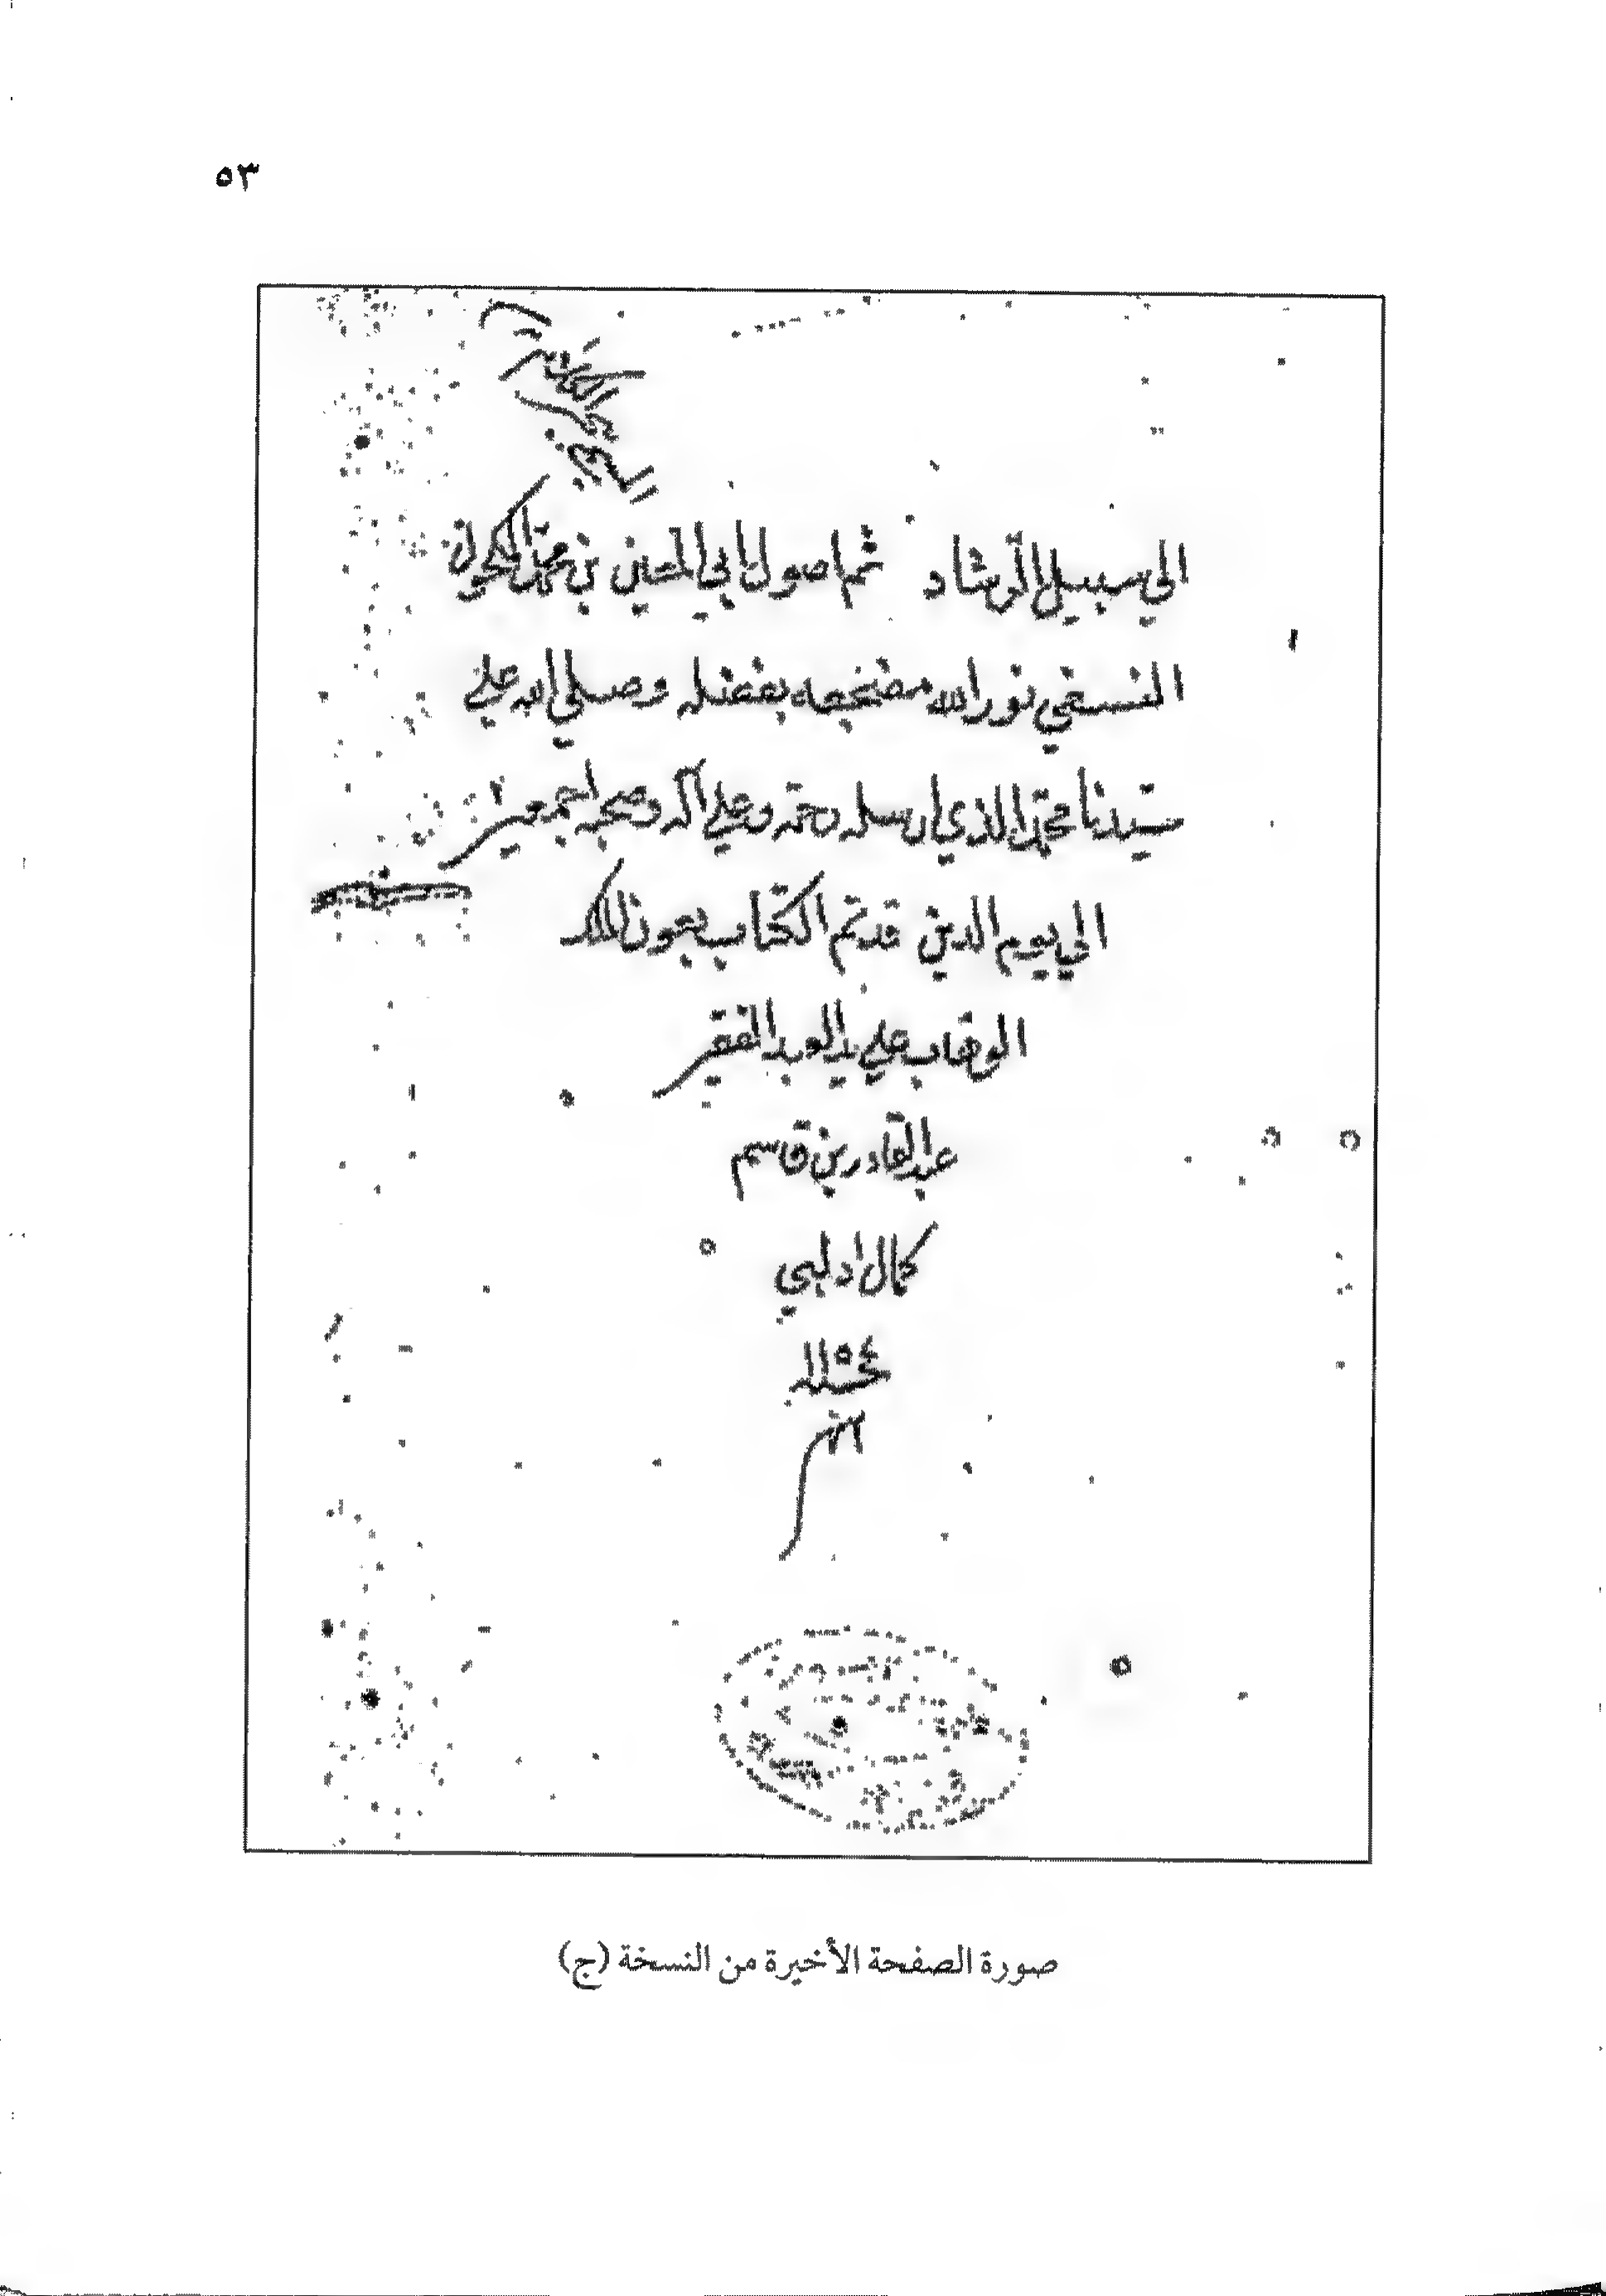 ٥٣
الي سبيل الرشاد تم اصول ابي المعين بن محمد المكحول
النسفي نور الله مضجعه بفضله وصلي الله علي
سيدنا محمد الذي ارسله رحمة وعلي اله وصحبه اجمعين
الي يوم الدين قد تم الكتاب بعون الملك
الوهاب علي يد العبد الفقير
عبد القادر بن قاسم
كمال ادلبي
١١٥٤
صورة الصفحة الأخيرة من النسخة (ج)